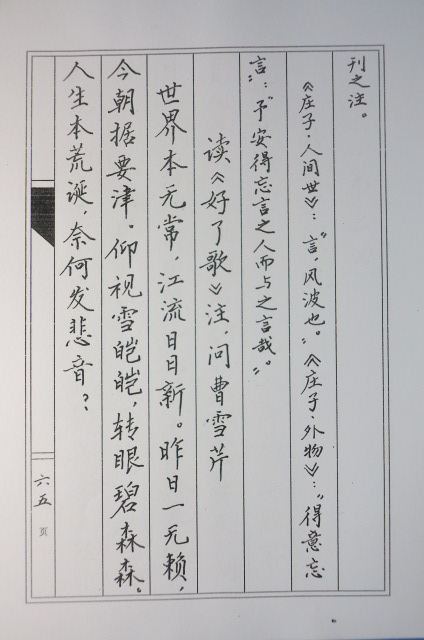 刊之注。
《庄子·人间世》：“言，风波也。”《庄子·外物》：“得意忘
言”：“予安得忘言之人而与之言哉”。
读《好了歌》注，问曹雪芹
世界本无常，江流日日新。昨日一无赖，
今朝据要津。仰视雪皑皑，转眼碧森森。
人生本荒诞，奈何发悲音？
六五页